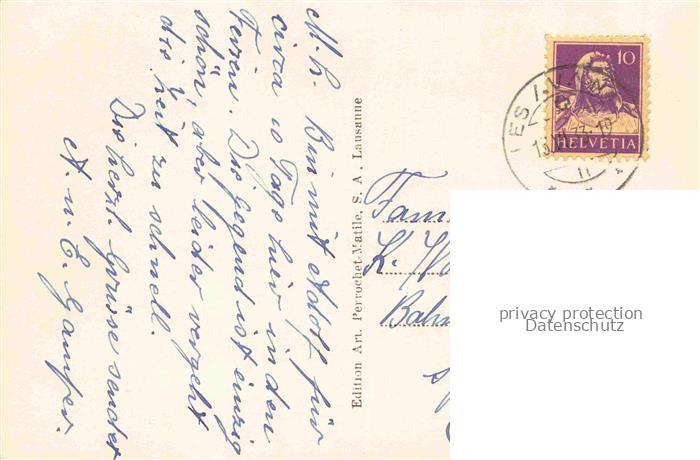 M. L. Bin mit Adolf für
circa 10 Tage hier in den
Ferien. Die Gegend ist einzig
schön, aber leider vergeht
die Zeit zu schnell.
Die herzl. Grüsse sendet
A. u. E. Gamper.
Edition Art. Perrochet-Matile, S. A., Lausanne
10
HELVETIA
Fam
K.
Bahn
privacy protection
Datenschutz